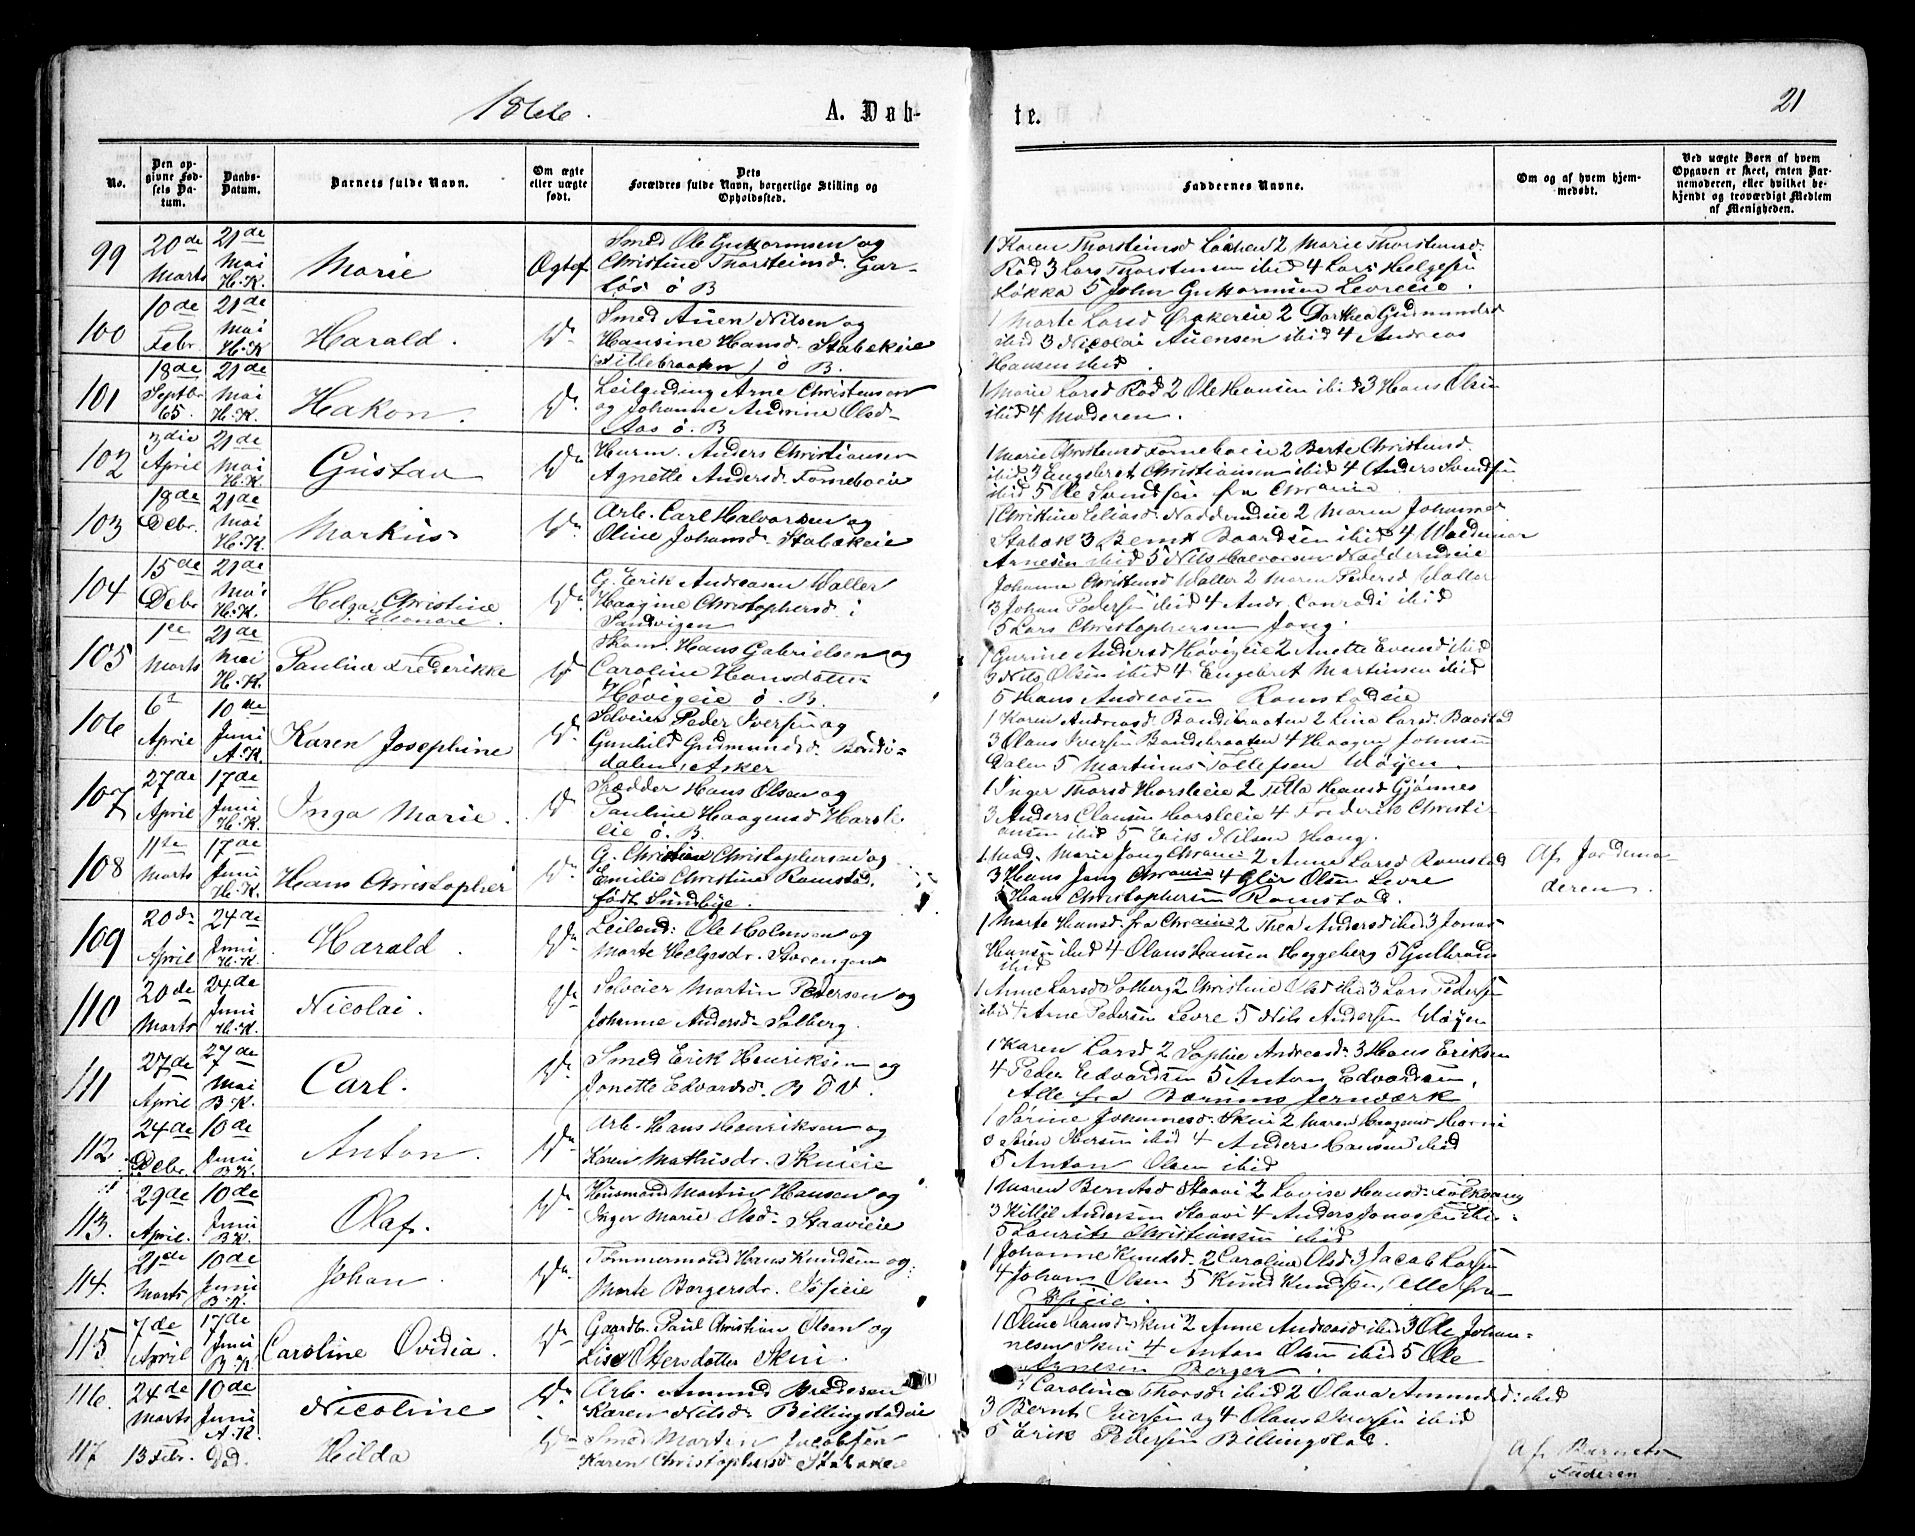 1866.
A. Døb-
te.
21
No.
Den op-
givne Fød-
sels Da-
tum.
Daabs-
Datum.
Barnets fulde Navn.
Om ægte
eller uægte
født.
Dets
Forældres fulde Navn, borgerlige Stilling og
Opholdssted.
Faddernes Navne.
Om og af hvem hjem-
medøbt.
Ved uægte Børn af hvem
Opgaven er skeet, enten Bar-
nemoderen, eller hvilket be-
kjendt og troværdigt Medlem
af Menigheden.
99
20de
Marts
21de
Mai
H.K.
Marie
Ægtef
Smed Ole Guttormsen og
Christine Thorsteinsd. Gar-
løs ø B
1 Karen Thorsteinsd Løkken 2 Marie Thorstensd:
Rød 3 Lars Thorstensen ibid 4 Lars Helgesen
Løkka 5 John Guttormsen Levreeie.
100
10de
Febr.
21de
Mai
H.K
Harald.
Do
Smed Auen Nilsen og
Hansine Hansd. Stabækeie
(Lillebraaten) ø B.
1 Marte Larsd Ørakereie 2 Dorthea Gudmundsd
ibid 3 Nicolai Auensen ibid 4 Andreas
Hansen ibid.
101
18de
Septbr
65.
21de
Mai
H.K.
Hakon.
Do
Leilending Arne Christensen
og Johanne Andrine Olsd.
Aas ø. B
1 Marie Larsd Rød 2 Ole Hansen ibid 3 Hans Olsen
ibid 4 Moderen.
102
3die
April
21de
Mai
H.K.
Gustav
Do
Husm. Anders Christiansen
Agnette Andersd. Forneboeie
1 Marie Christensd Forneboeie 2 Berte Christensd.
ibid 3 Engebret Christiansen ibid 4 Anders Svendsen
ibid 5 Ole Svendsen fra Chrania
103
18de
Debr.
21de
Mai
H.K.
Markus
Do
Arb. Carl Halvorsen og
Oline Johansd. Stabækeie
1 Christine Eliasd. Nadderudeie 2 Maren Johannes
Stabæk 3 Bernt Baardsen ibid 4 Waldemar
Arnesen ibid 5 Nils Halvorsen Nadderudeie
104
15de
Debr
21de
Mai
H.K.
Helga Christine
Eleonore.
Do
G. Erik Andreasen Valler
Haagine Christophersd. i
Sandvigen
Johanne Christensd Valler 2 Maren Pedersd Valler
3 Johan Pedersen ibid 4 Andr. Conradi ibid
5 Lars Christophersen Jong.
105
1ste
Marts
21de
Mai
H.K.
Paulina Frederikke
Do
Skom. Hans Gabrielsen og
Caroline Hansdatter
Høvigeie ø. B.
1 Gurine Andersd Høvigeie 2 Anette Evensd ibid
3 Nils Olsen ibid 4 Engebret Martinsen ibid
5 Hans Andreasen Ramstadeie
106
6te
April
10de
Juni
A.K.
Karen Josephine
Do
Selveier Peder Iversen og
Gunhild Gudmundsd. Bondi-
dalen, Asker
1 Karen Andreasd. Bondibraaten 2 Lina Larsd. Baastad
3 Olaus Iversen Bondebraaten 4 Haagen Johnsen
Dalen 5 Martinus Tollefsen Wøyen.
107
27de
April
17de
Juni
H.K.
Inga Marie.
Do
Skrædder Hans Olsen og
Pauline Haagensd Harsle
eie ø. B.
1 Inger Thorsd Horsleeie 2 Hansd Gjønnes
3 Anders Clausen Horsleeie 4 Frederik Christi
ansen ibid 5 Erik Nilsen Haug.
108
11te
Marts
17de
Juni
H.K.
Hans Christopher
Do
G. Christian Christophersen og
Emilie Christine Ramstad,
født Sundbye.
1 Mad. Marie Jong Chrania 2 Anne Larsd Ramstad
3 Hans Jong Chrania 4 Olsen Levre
5 Hans Christophersen Ramstad.
Af Jordemo-
deren.
109
20de
April
24de
Juni
H.K.
Harald.
Do
Leilend: Ole Holmsen og
Marte Helgesdr. Storengen
1 Marte Hansd. fra Chrania 2 Thea Andersd ibid 3 Jonas
Hansen ibid 4 Olaus Hansen Heggeberg 5 Gulbrand
ibid
110
20de
Marts
24de
Juni
H.K.
Nicolai.
Do
Selveier Martin Pedersen og
Johanne Andersd. Solberg.
1 Anne Larsd Solberg 2 Christine Olsd ibid 3 Lars Pedersen
ibid 4 Arne Pedersen Levre 5 Nils Andersen Wøyen
111
27de
April
27de
Mai
B.K.
Carl.
Do
Smed Erik Henriksen og
Jonette Edvardsd. B J V.
1 Karen Larsd 2 Sophie Andreasd. 3 Hans Eriksen
4 Peder Edvardsen 5 Anton Edvardsen.
Alle fra Bærums Jernværk
112
24de
Debr.
10de
Juni
B.K.
Anton.
Do
Arb. Hans Henriksen og
Karen Mathisdr. Skuieie
1 Sørine Johannesd. Skui 2 Maren Haagensd Horni
3 Søren Iversen ibid 4 Anders Hansen ibid
5 Anton Olsen ibid
113.
29de
April.
10de
Juni
B.K.
Olaf.
Do
Husmand Martin Hansen og
Inger Marie Olsd. Staavieie
1 Maren Berntsd Staavi 2 Lovise Hansd.
3 Killil Andersen Staavi 4 Anders Jonassen ibid.
5 Laurits Christiansen ibid
114.
21de
Marts
10de
Juni
B.K.
Johan.
Do
Tømmermand Hans Knudsen og
Marte Borgersdr.
1 Johanne Knudsd. 2 Carolina Olsd 3 Jacob Larsen
4 Johan Olsen 5 Knud Knudsen, Alle fra
115
7de
April
17de
Juni
B.K.
Caroline Ovidia.
Do
Gaardbr. Paul Christian Olsen og
Lise Ottersdatter Skui.
1 Oline Hansd. Skui 2 Anne Andreasd ibid 3 Ole Johan-
nesen Skui 4 Anton Olsen ibid 5 Ole
Arnesen Berger.
116.
24de
Marts
10de
Juni
A.K.
Nicoline
Do
Arb. Amund Bredesen
Karen Nilsd. Billingstadeie
1 Carolina Thorsdr ibid 2 Olava Amundsd. ibid
3 Bernt Iversen og 4 Olaus Iversen ibid
5 Erik Pedersen Billingstad.
117
13 Febr.
Død.
Hilda
Do
Smed Martin Jacobsen
Karen Christophersd Stabækeie
Af Barnets
Faderen